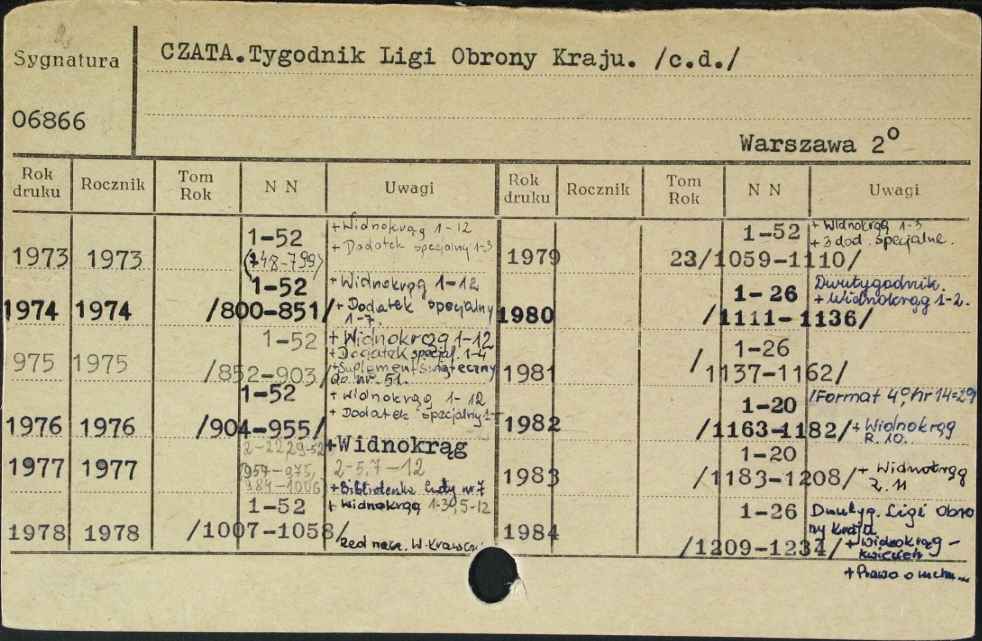 Sygnatura
06866
CZATA.Tygodnik Ligi Obrony Kraju. /c.d./
Warszawa 2°
Rok druku Rocznik Tom Rok N N Uwagi Rok druku Rocznik Tom Rok N N Uwagi
1973 1973 1-52 + Widnokrąg 1-12
(748-799) + Dodatek specjalny 1-3
1974 1974 1-52 + Widnokrąg 1-12
/800-851/ + Dodatek specjalny
1-7.
975 1975 1-52 + Widnokrąg 1-12
+ Dodatek specjal. 1-4
/852-903/ + Suplement świąteczny
do nr. 51.
1976 1976 1-52 + Widnokrąg 1-12
/904-955/ + Dodatek specjalny 1-
1977 1977 2-22 29-52 +Widnokrąg
/954-975, 2-5,7-12
984-1006/ + Biblioteczka nr 7
1978 1978 1-52 + Widnokrąg 1-3 5-12
/1007-1058/
Red. nacz. W. Krawcz
1979 1-52 + Widnokrąg 1-3
+ 3 dod. specjalne.
23/1059-1110/
1980 1-26 Dwutygodnik.
+ Widnokrąg 1-2.
/1111-1136/
1981 1-26
/1137-1162/
1982 1-20 /Format 4° nr 14=29
/1163-1182/ + Widnokrąg
R. 10.
1983 1-20
/1183-1208/ + Widnokrąg
R. 11
1984 1-26 Dwutyg. Ligi Obro
ny Kraju
/1209-1234/ + Widnokrąg -
kwiecień
+ Prawo o